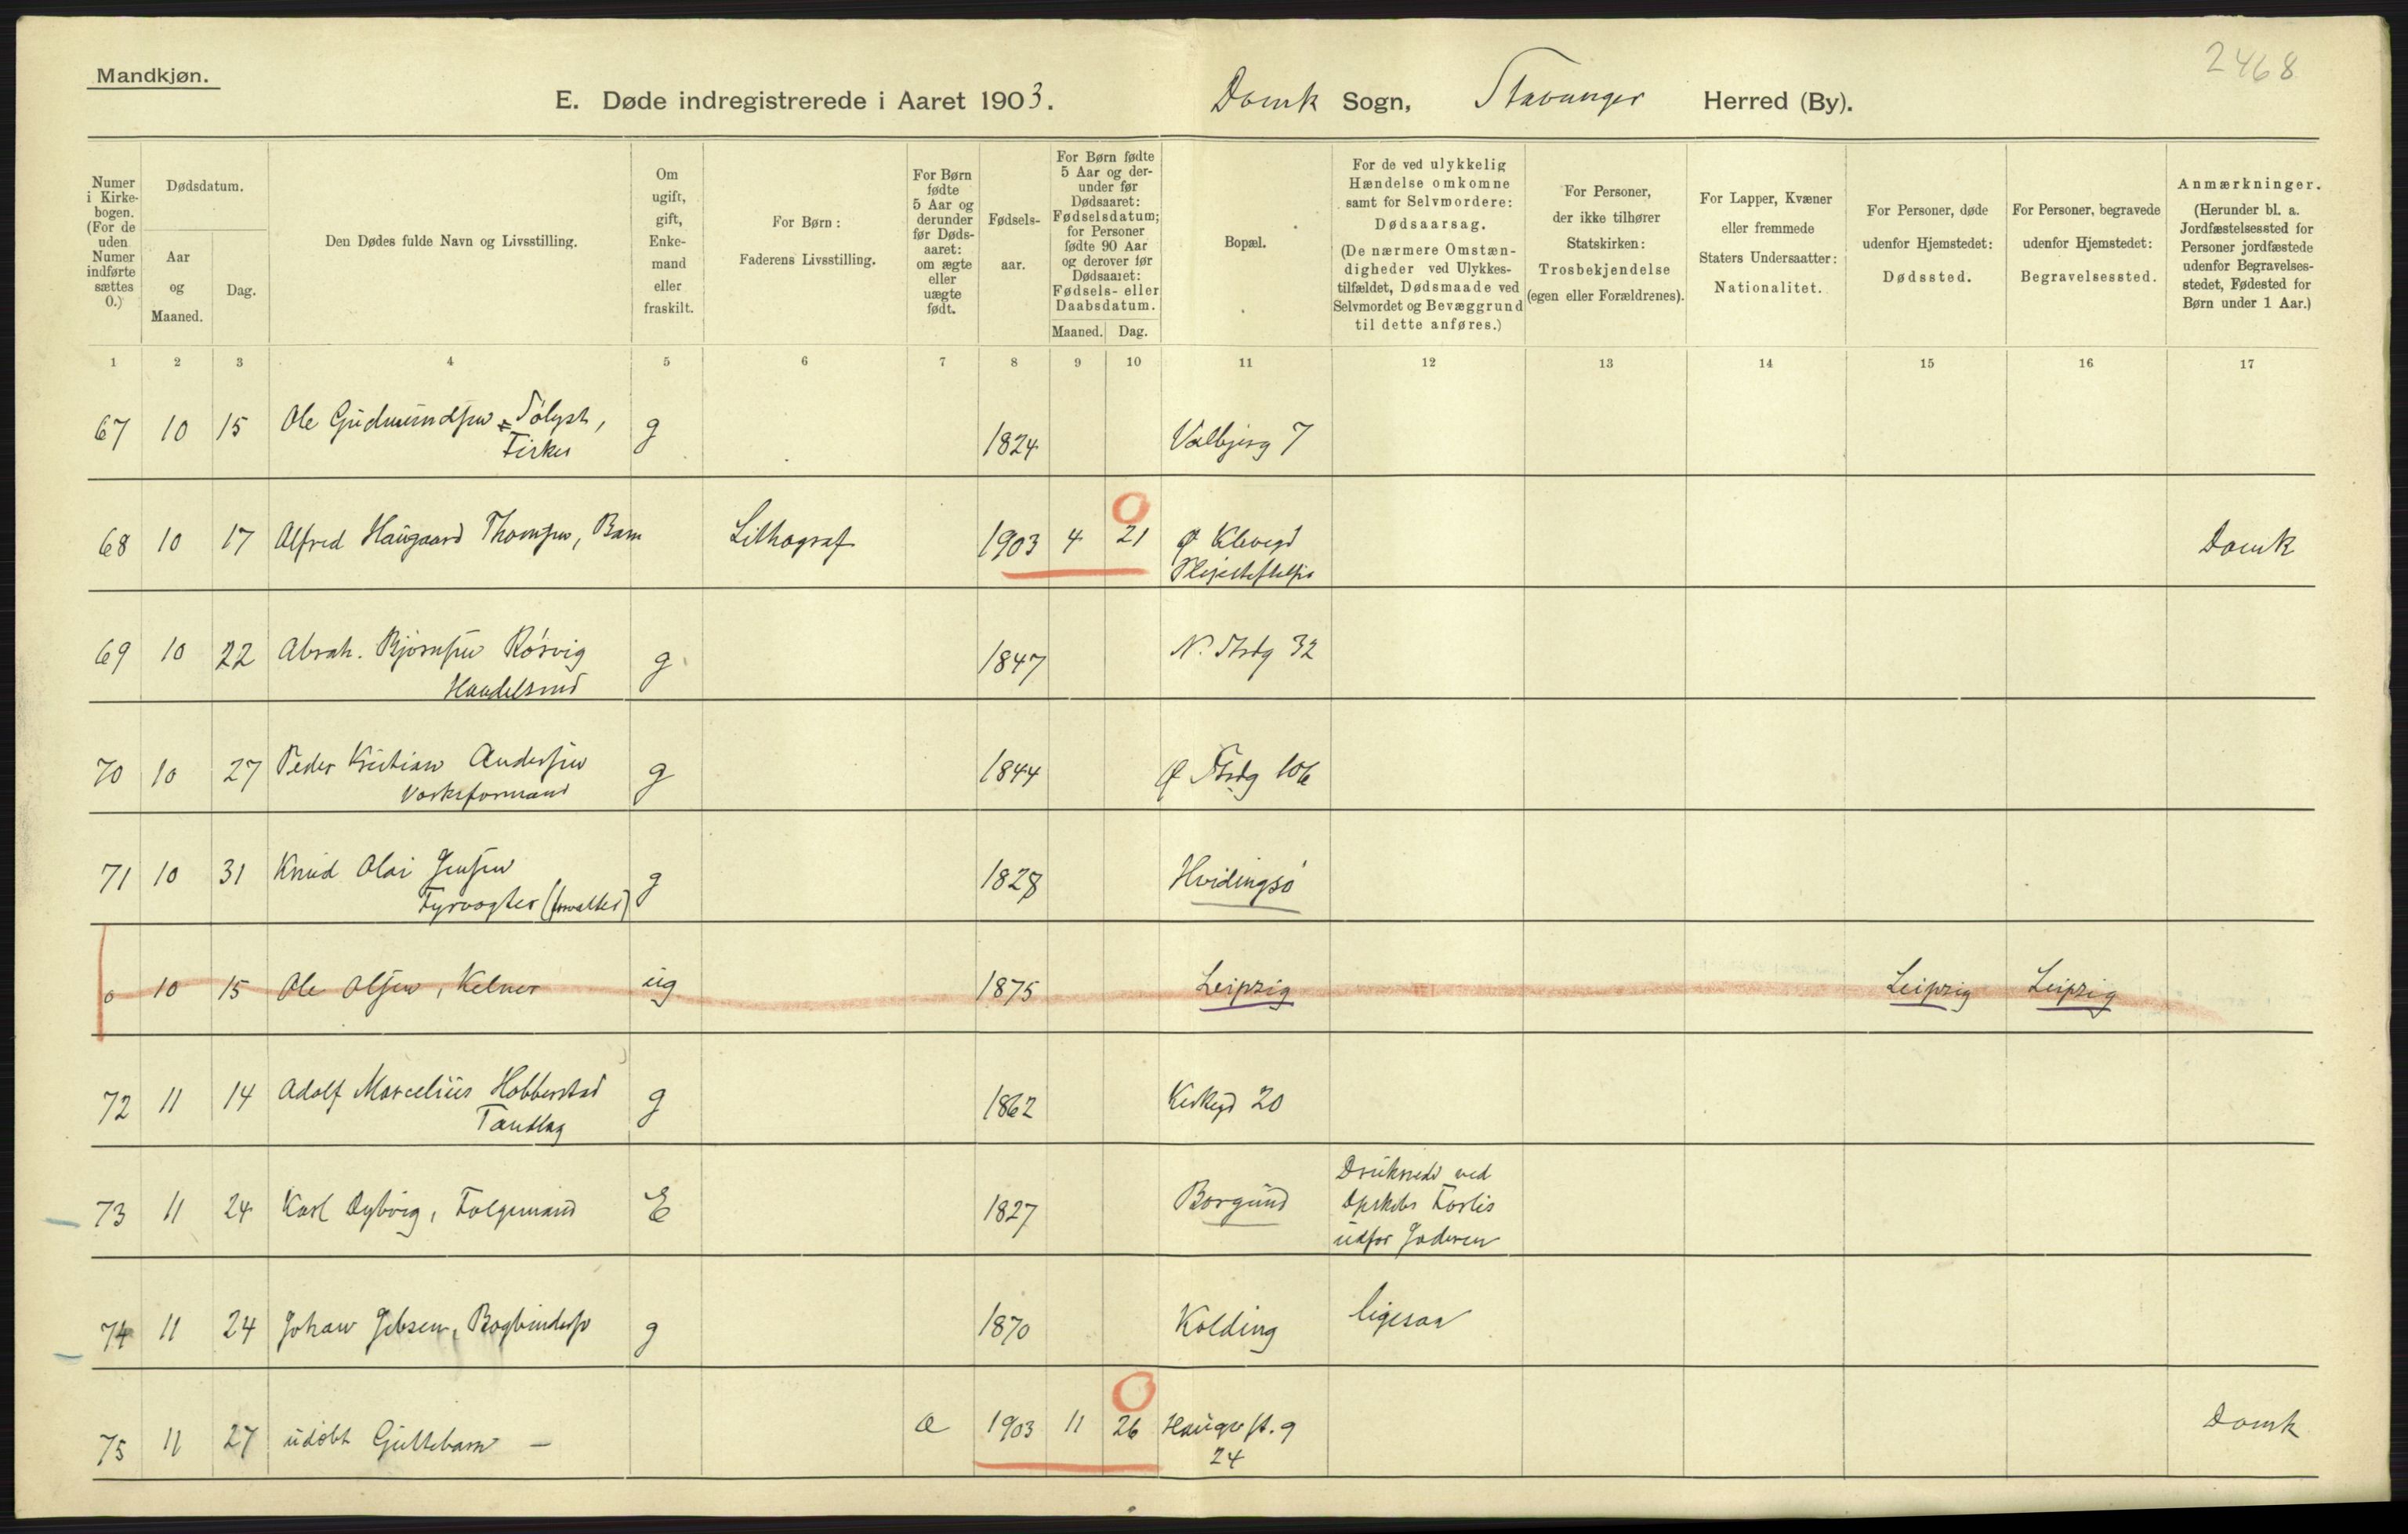 Mandkjøn.
2468
E. Døde indregistrerede i Aaret 1903. Domk Sogn, Stavanger Herred (By).
Numer i Kirke-bogen. (For de uden Numer indførte sættes 0.)
Dødsdatum.
Aar og Maaned.
Dag.
Den Dødes fulde Navn og Livsstilling.
Om ugift, gift, Enke-mand eller fraskilt.
For Børn: Faderens Livsstilling.
For Børn fødte 5 Aar og derunder før Døds-aaret: om ægte eller uægte født.
Fødsels-aar.
For Børn fødte 5 Aar og der-under før Dødsaaret: Fødselsdatum; for Personer fødte 90 Aar og derover før Dødsaaret: Fødsels- eller Daabsdatum.
Maaned. Dag.
Bopæl.
For de ved ulykkelig Hændelse omkomne samt for Selvmordere: Dødsaarsag. (De nærmere Omstæn-digheder ved Ulykkes-tilfældet, Dødsmaade ved Selvmordet og Bevæggrund til dette anføres.)
For Personer, der ikke tilhører Statskirken: Trosbekjendelse (egen eller Forældrenes).
For Lapper, Kvæner eller fremmede Staters Undersaatter: Nationalitet.
For Personer, døde udenfor Hjemstedet: Dødssted.
For Personer, begravede udenfor Hjemstedet: Begravelsessted.
Anmærkninger. (Herunder bl. a. Jordfæstelsessted for Personer jordfæstede udenfor Begravelses-stedet, Fødested for Børn under 1 Aar.)
1 2 3 4 5 6 7 8 9 10 11 12 13 14 15 16 17
67 10 15 Ole Gudmundsen Sølyst, g 1824 Valbjerg 7
Fisker
68 10 17 Alfred Haugaard Thomsen, Barn Lithograf 1903 4 21 Ø Klevegd Domk
69 10 22 Abrah. Bjørnsen Rosvig g 1847 N. Strdg 32
Handelsmd
70 10 27 Peder Kristian Andersen g 1844 Ø Strdg 106
Værksformand
71 10 31 Knud Olai Jensen g 1828 Hvidingsø
Fyrvogter (forvalter)
0 10 15 Ole Olsen, Kelner ug 1875 Leipzig Leipzig Leipzig
72 11 14 Adolf Marcelius Hobberstad g 1862 Kirkegd 20
Tandlæg
73 11 24 Karl Dybvig, Følgemand E 1827 Borgund Druknede ved
Dpskibs Forlis
udfor Jæderen
74 11 24 Johan Jebsen, Bogbindersv g 1870 Kolding ligesaa
75 11 27 udøbt Guttebarn — Æ 1903 11 26 Haugv st. g Domk
24